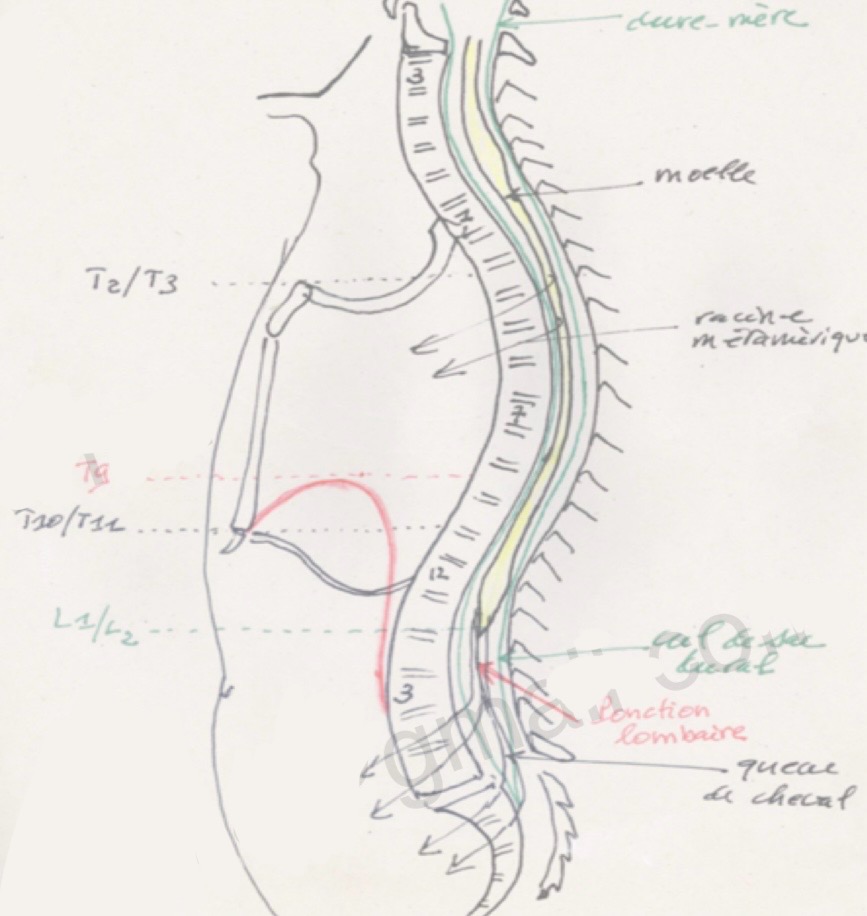 dure-mère
3
moelle
T2/T3
racine
métamérique
7
T9
T10/T11
12
L1/L2
cul de-sac
dural
3
Ponction
lombaire
queue
de cheval